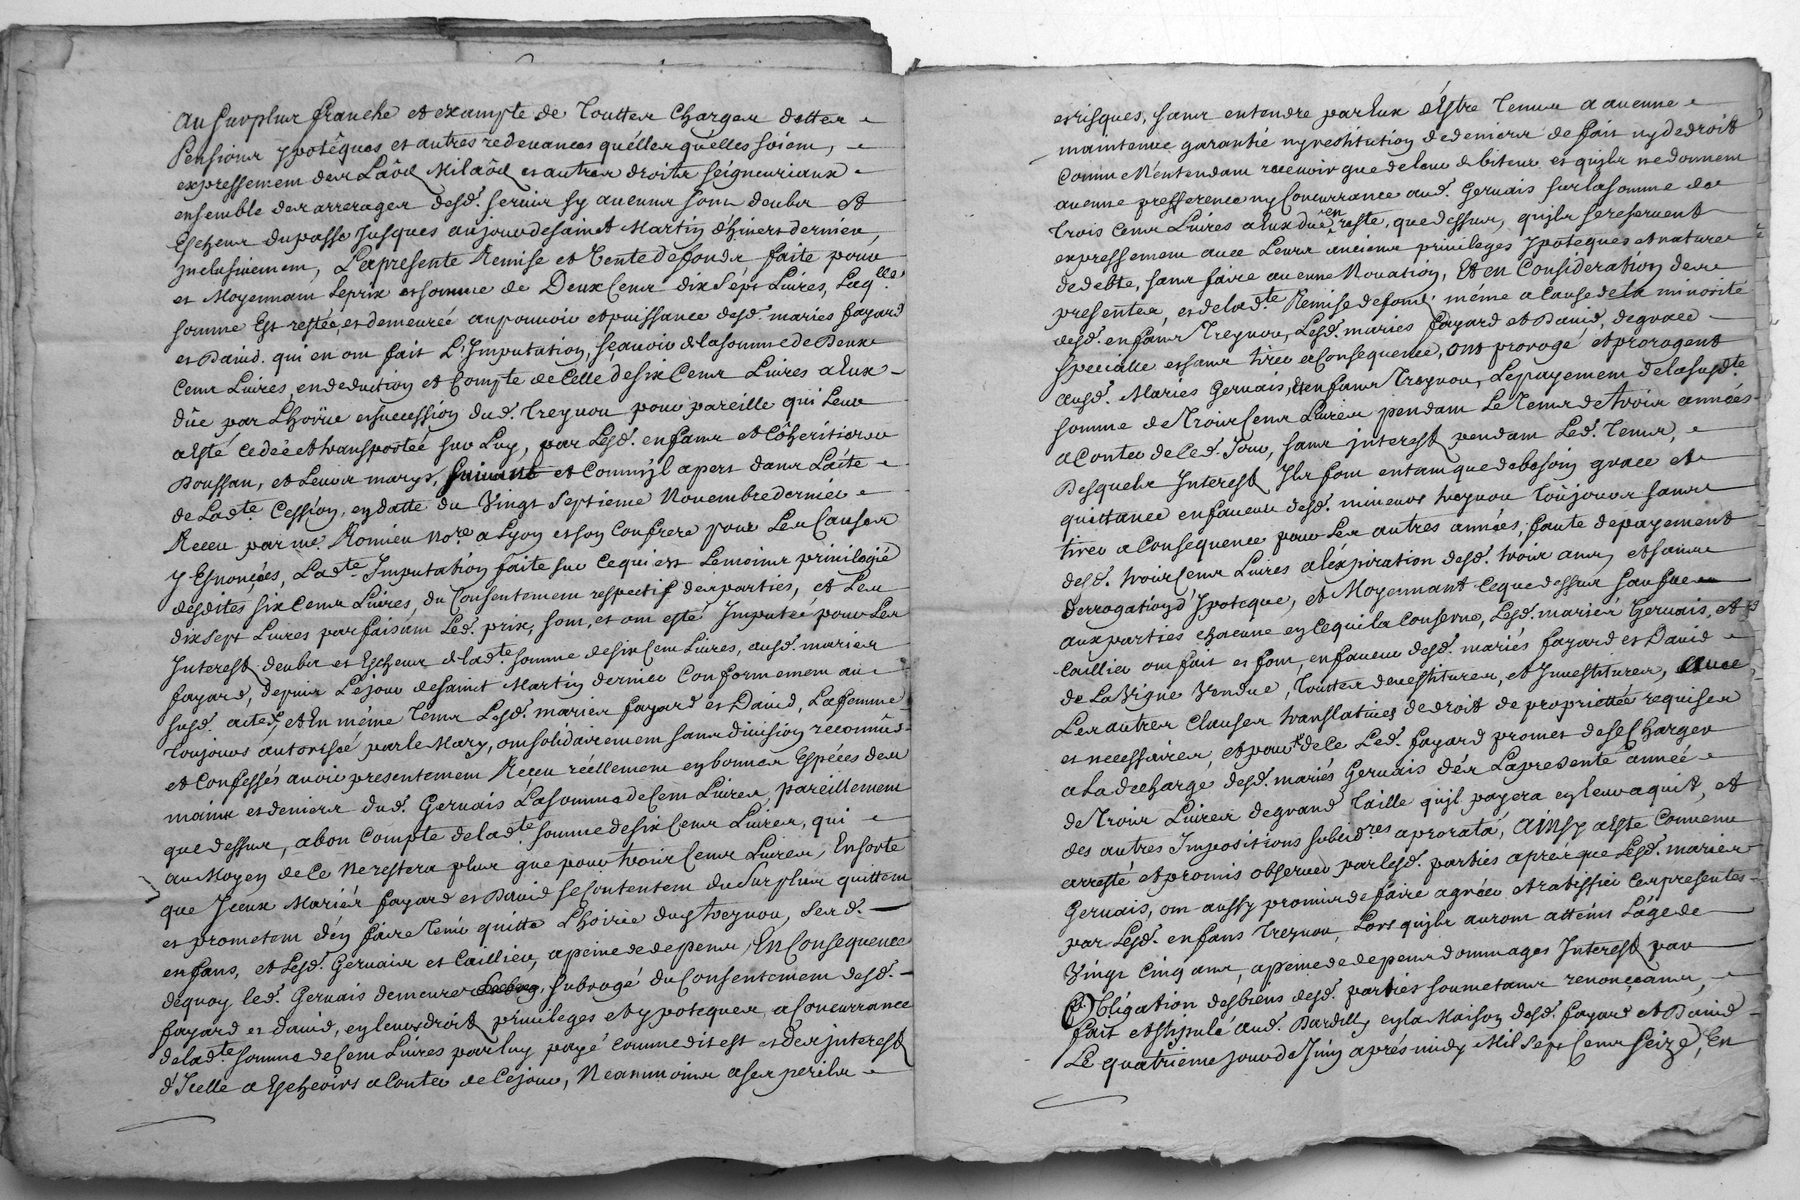 au surplus franche et exampte de touttes charges dettes
Pensions ypotêques et autres redevances quélles quélles soient,
expressement des Laôd Milaôd et autres droits seigneuriaux
ensemble des arrerages desd. servis sy aucuns sont deubs et
Escheus du passé Jusques aujour de saint Martin dhivers dernier,
Inclusivement, La presente Remise et Vente de fonds faite pour
et Moyennant Le prix et somme de Deux Cens dix sept Livres, Laq.lle
somme Est restée et demeurée au pouvoir et puissance desd. mariés fayard
et David. qui en ont fait L'Imputation, sçavoir de la somme de Deux
Cens Livres, en deduction et Compte de Celle de six Cens Livres a Eux
dûe par Lhoirie et succession dud. Treynou pour pareille qui Leur
a Esté cedée et transportée sur Luy, par Lesd. enfans et Cohéritiers
Doussan, et Leurs marys, suivant et Comm'jl apert dans Lacte
de Lad.te Cession, en datte du Vingt Septieme Novembre dernier
Receu par me. Romieu no.re a Lyon et son Confrere pour Les Causes
y Esnonçées, Lad.te Imputation faite sur ce qui est Le moins privilegié
desdites six Cens Livres, du Consentement respectif des parties, et Les
dix sept Livres parfaisant Led. prix, sont, et ont esté Imputée pour Les
Interest deubs et Escheus de lad.te somme de six Cens Livres, ausd. mariés
fayard, depuis Le jour de saint Martin dernier Conformement au
susd. acte, et En même Tems Lesd. mariés fayard et David, La femme
Toujours autorisée par le Mary, ont solidairement sans division reconnus
et Confessés avoir presentement Receu réellement en bonnes Espéces des
mains et deniers dud. Gervais La somme de Cent Livres, pareillement
que dessus, a bon Compte de lad.te somme de six Cens Livres, qui
au Moyen de Ce ne restera plus que pour trois Cens Livres, En sorte
que Jceux Mariés fayard et David se Contentent du Surplus quittent
et prometent d'en faire Tenir quitte Lhoirie dud. treynou, sesd.
enfans, et Lesd. Gervais et Caillier, a peine de depens, En Consequence
dequoy led. Gervais demeure subrogé du Consentement desd.
fayard et David, en leurs droits privileges et ypoteques, a Concurrance
de lad.te somme de Cent Livres par luy payé comme dit est et des interest
d'Icelle a Escheoirs a Conter de Ce jour, Neanmoins a ses perils
et risques, sans entendre par Eux d'Estre Tenus a aucune
maintenue garantié ny restitution de deniers de fait ny de droit
Comme N'entendant recevoir que de leur debiteur et qu'jls ne donnent
aucune prefference ny Concurrance aud. Gervais sur la somme de
trois Cens Livres a Eux due en reste, que dessus, qu'jls se reservent
expressement avec Leurs anciens privileges ypotèques et nature
de debte, sans faire aucune Novation, Et en Consideration des
presentes, et de lad.te Remise de fond, même a Cause de la minorité
desd. enfans Treynou, Lesd. mariés fayard et David, de grace
specialle et sans tirer a Consequence, ont prorogé et prorogent
ausd. Mariés Gervais, et enfans Treynou, Le payement de la susd.te
somme de Trois Cens Livres pendant Le Tems de trois années
a Conter de Ced. Jour, sans jnterest pendant Led. Tems,
Desquels Interest Jls font en tant que de besoin grace et
quittance en faveur desd. mineurs treynou Toujours sans
tirer a Consequence pour Les autres années, faute de payement
desd. trois Cens Livres a l'éxpiration desd. trois ans, et sans
derrogation d'ypoteque, et Moyennant Ce que dessus sauf
aux parties chacune en Ce qui la Conserne, Lesd. mariés Gervais, et
Caillier ont fait et font, en faveur desd. mariés fayard et David
de La Vigne Vendue, Touttes devestitures, et Jnvestitures, avec
Les autres Clauses translatives de droit de proprietté requises
et necessaires, et pour de Ce Led. fayard promet de se Charger
a la decharge desd. mariés Gervais dés La presente année
de Trois Livres de grand Taille qu'jl payera en leur aquit, et
des autres Impositions subcid.res a prorata, ainsy a esté Convenu
arresté et promis observer par lesd. parties aprés que Lesd. mariés
Gervais, ont aussy promis de faire agréer et ratiffier Ces presentes
par Lesd. enfans Treynou, Lors qu'jls auront atteins L'âge de
Vingt Cinq ans, a peine de depens dommages Interest par
Obligation des biens desd. parties soumetans renonçeans,
fait et stipulé aud. Dardilly en la Maison desd. fayard et David
Le quatrieme jour de Juin aprés midy Mil sept Cens seize, En